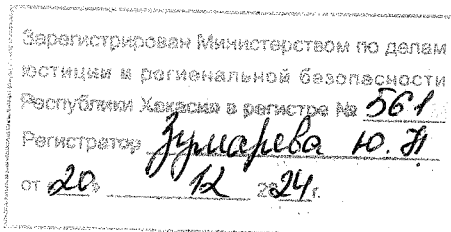 Зарегистрирован Министерством по делам
юстиции и региональной безопасности
Республики Хакасия в регистре № 561
Регистратор Зумарева Ю.Н
от 20 12 2024г.